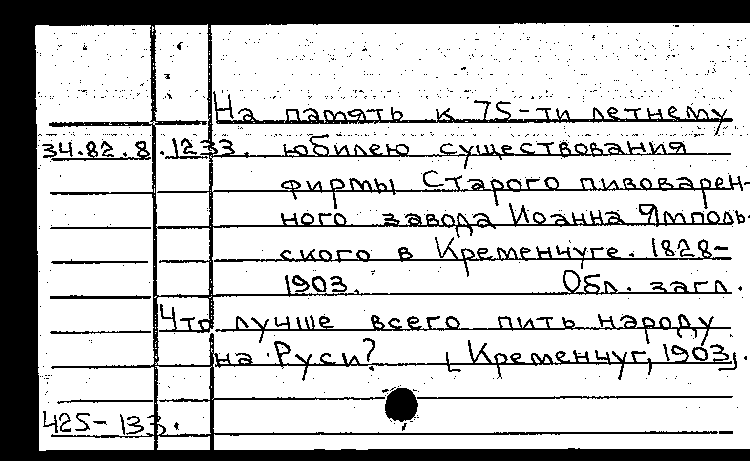 На память к 75-ти летнему
34.82.8.1233. юбилею существования
фирмы Старого пивоварен-
ного завода Иоанна Ямполь-
ского в Кременчуге. 1828-
1903. Обл. загл.
Что лучше всего пить народу
на Руси? [Кременчуг, 1903].
425-133.